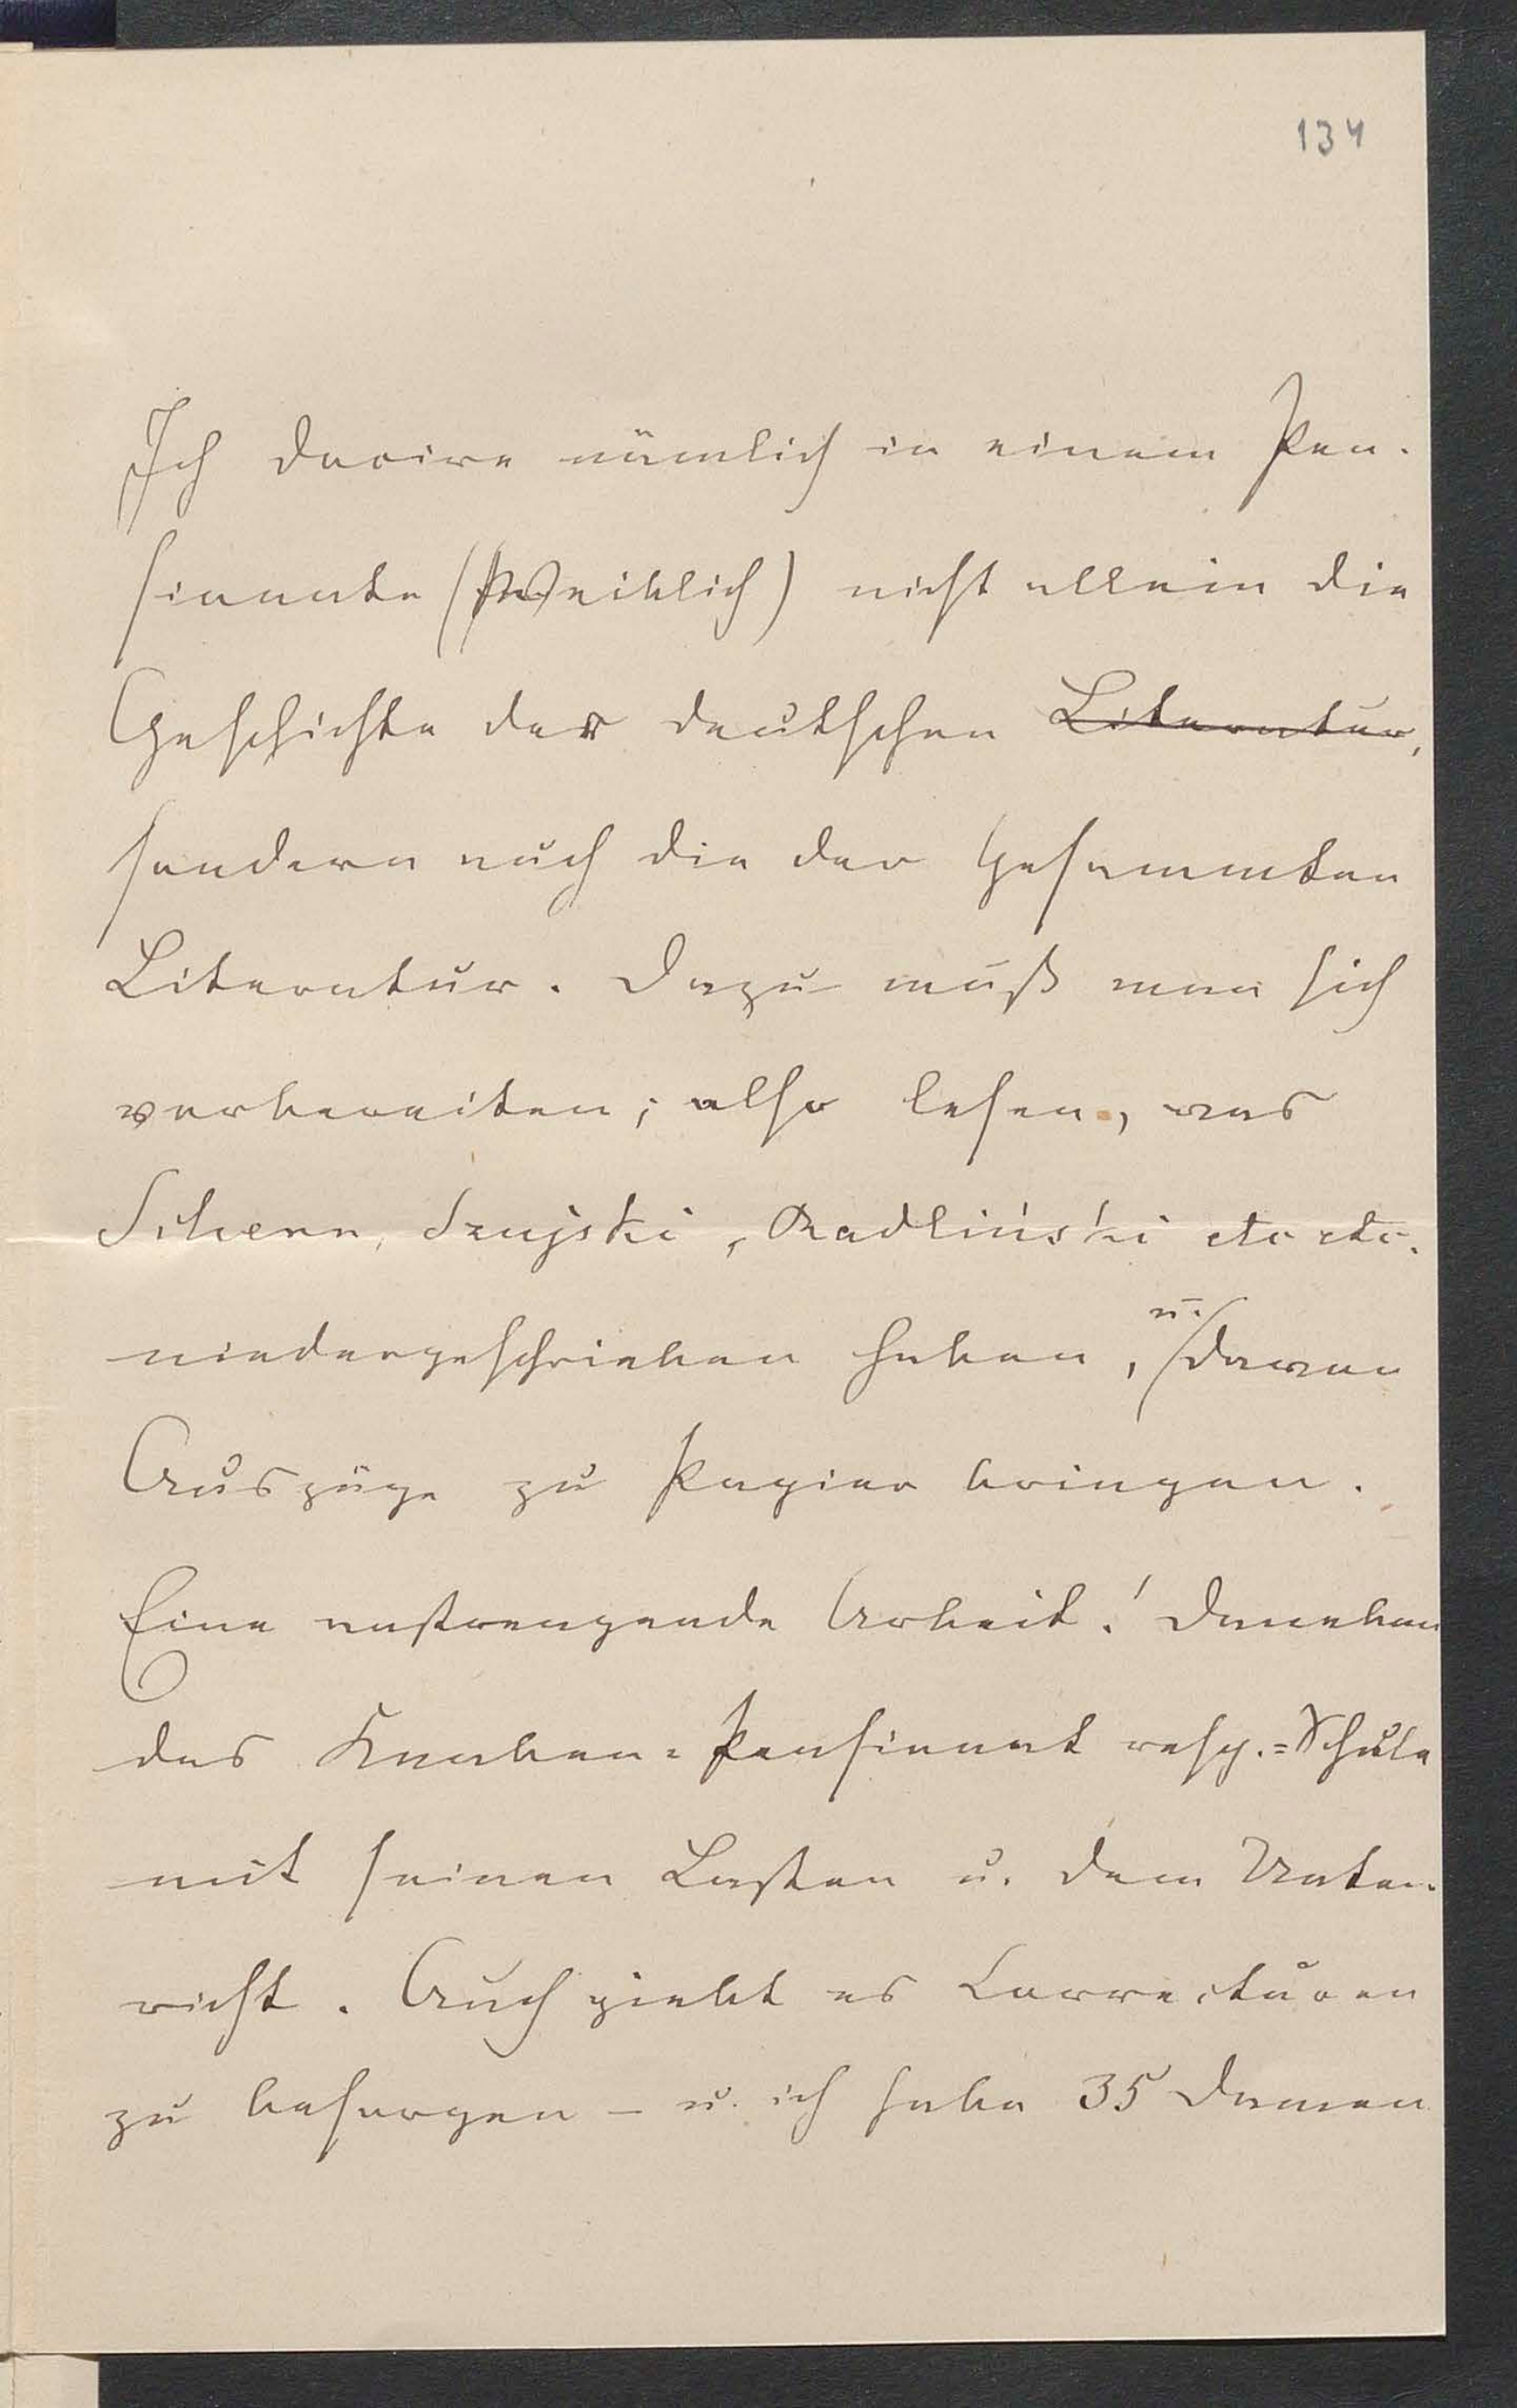 134
Ich docire nämlich in einem Pen-
sionate (Weiblich) nicht allein die
Geschichte der deutschen Literatur,
sondern auch die der Gesammten
Literatur. Dazu muß man sich
vorbereiten; also lesen, was
Scherr, Szujski, Radliński etc etc.
niedergeschrieben haben, u. davon
Auszüge zu Papier bringen.
Eine anstrengende Arbeit! Daneben
das Knaben=Pensionat resp.=Schule
mit seinen Lasten u. dem Unter-
richt. Auch giebt es Correcturen
zu besorgen – u. ich habe 35 Damen